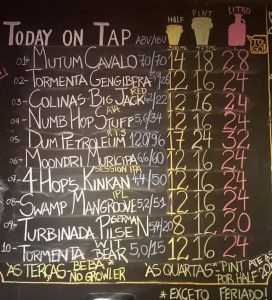 TODAY ON TAP ABV/IBU HALF PINT LITRO
01- MUTUM CAVALO 14 18 28
02- TORMENTA GENGIBERA 12 16 24
03- COLINAS BIG JACK RED 12 16 24
04- NUMB HOP STUFF 5,6/34 12 16 24
05- DUM PETROLEUM R.I.S 12,0/96 17 24 32
06- MOONDRI MURICIPA 6,6/60 12 16 24
07- 4 HOPS KINKAN SESSION IPA 4,4/50 12 16 24
08- SWAMP MANGROOVE IPL 5,2/51 12 16 24
09- TURBINADA PILSEN GERMAN 12 16 24
10- TORMENTA BEAR WIT 5,0/15 12 16 24
AS TERÇAS - BEBA NO GROWLER
AS QUARTAS - PINT
POR HALF
* EXCETO FERIADO!